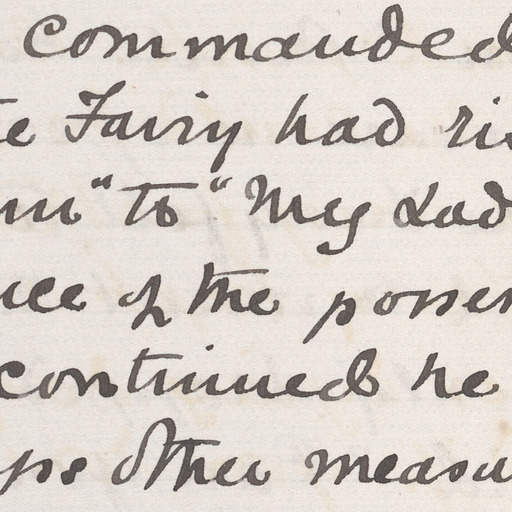 commanded
te Fairy had ris
m" to "My Lad
uce of the posses
continued he
ps other measu